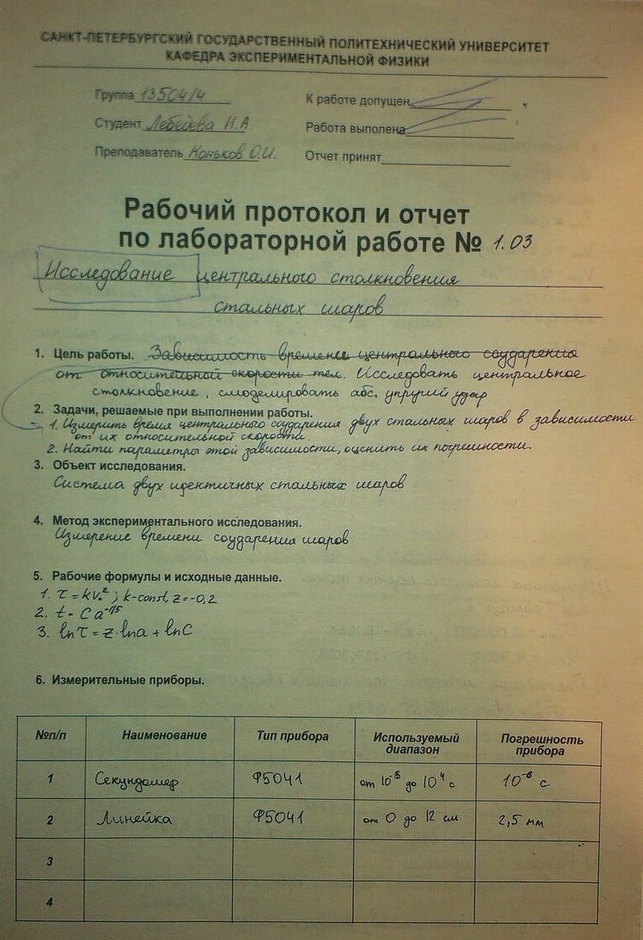 САНКТ-ПЕТЕРБУРГСКИЙ ГОСУДАРСТВЕННЫЙ ПОЛИТЕХНИЧЕСКИЙ УНИВЕРСИТЕТ
КАФЕДРА ЭКСПЕРИМЕНТАЛЬНОЙ ФИЗИКИ
Группа 13504/4 К работе допущен
Студент Лебедева Н.А Работа выполена
Преподаватель Коньков О.И. Отчет принят
Рабочий протокол и отчет
по лабораторной работе № 1.03
Исследование центрального столкновения
стальных шаров
1. Цель работы. Зависимость времени центрального соударения
от относительной скорости тел. Исследовать центральное
столкновение, смоделировать абс. упругий удар
2. Задачи, решаемые при выполнении работы.
1. Измерить время центрального соударения двух стальных шаров в зависимости
от их относительной скорости.
2. Найти параметры этой зависимости, оценить их погрешности.
3. Объект исследования.
Система двух идентичных стальных шаров
4. Метод экспериментального исследования.
Измерение времени соударения шаров
5. Рабочие формулы и исходные данные.
1. τ = kv₀ᶻ; k-const, z=-0,2
2. t - Ca^-1/5
3. lnτ = z·lna + lnC
6. Измерительные приборы.
№п/п Наименование Тип прибора Используемый диапазон Погрешность прибора
1 Секундомер Ф5041 от 10⁻⁸ до 10⁴ с 10⁻⁸ с
2 Линейка Ф5041 от 0 до 12 см 2,5 мм
3
4